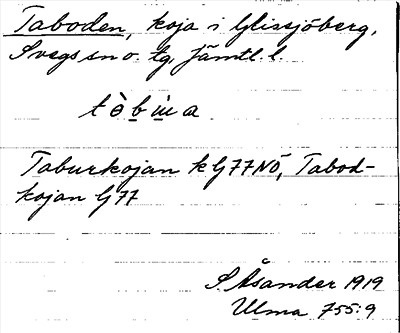 Taboden, koja i Glissjöberg,
Svegs sn o. tg, Jämtl. l.
Taburkojan k G77NÖ, Tabod-
kojan G 77
S. Åsander 1919
Ulma 755:9